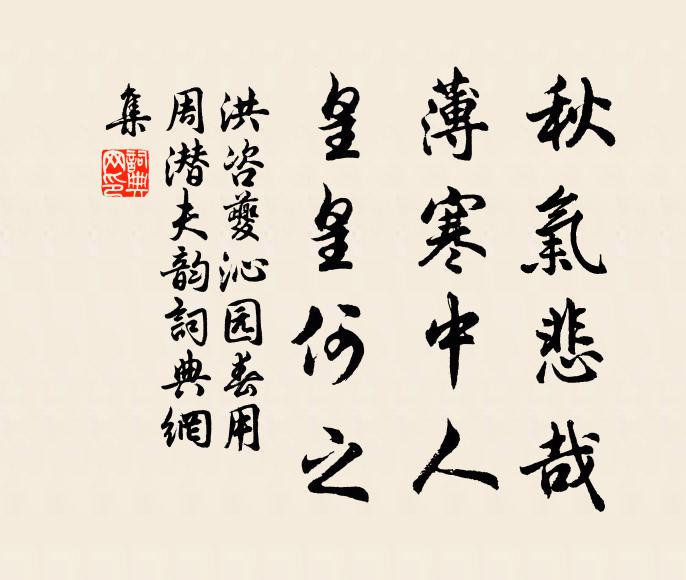 秋氣悲哉
薄寒中人
皇皇何之
洪咨夔沁园春用
周潜夫韵詞典網
集
詞典网印